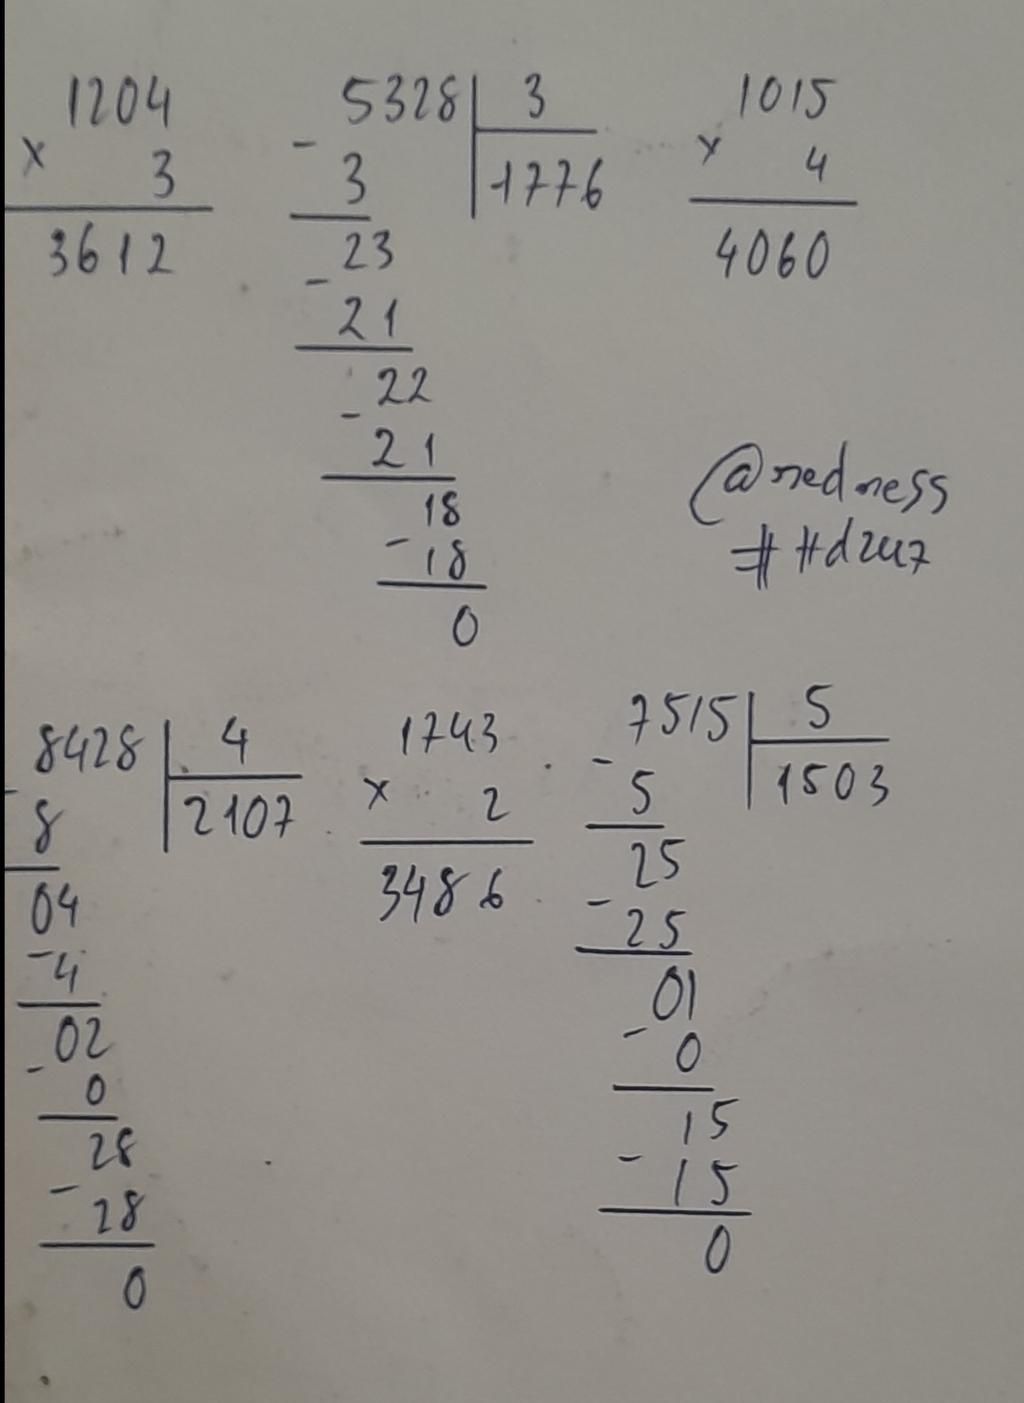 1204
× 3
3612
5328 3
- 3 1776
23
- 21
22
- 21
18
- 18
0
1015
× 4
4060
@nedness
##d2u7
8428 4
- 8 2107
04
- 4
02
- 0
28
- 28
0
1743
× 2
3486
7515 5
- 5 1503
25
- 25
01
- 0
15
- 15
0